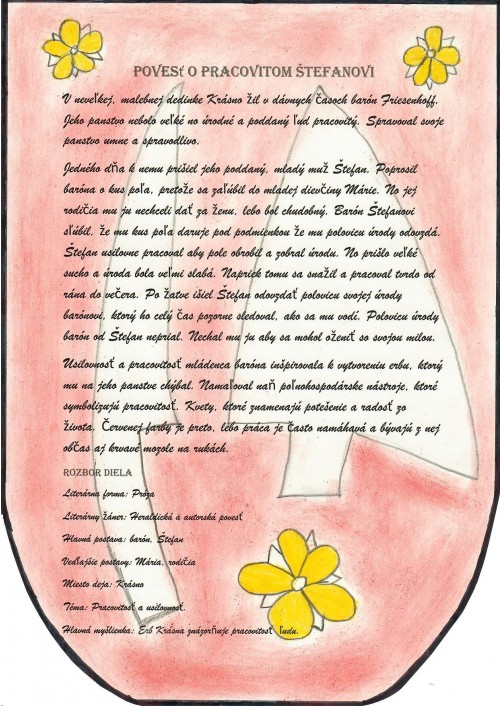 POVESť O PRACOVITOM ŠTEFANOVI
V neveľkej, malebnej dedinke Krásno žil v dávnych časoch barón Friesenhoff.
Jeho panstvo nebolo veľké no úrodné a poddaný ľud pracovitý. Spravoval svoje
panstvo umne a spravodlivo.
Jedného dňa k nemu prišiel jeho poddaný, mladý muž Štefan. Poprosil
baróna o kus poľa, pretože sa zaľúbil do mladej dievčiny Márie. No jej
rodičia mu ju nechceli dať za ženu, lebo bol chudobný. Barón Štefanovi
sľúbil, že mu kus poľa daruje pod podmienkou že mu polovicu úrody odovzdá.
Štefan usilovne pracoval aby pole obrobil a zobral úrodu. No prišlo veľké
sucho a úroda bola veľmi slabá. Napriek tomu sa snažil a pracoval tvrdo od
rána do večera. Po žatve išiel Štefan odovzdať polovicu svojej úrody
barónovi, ktorý ho celý čas pozorne sledoval, ako sa mu vodí. Polovicu úrody
barón od Štefan neprial. Nechal mu ju aby sa mohol oženiť so svojou milou.
Usilovnosť a pracovitosť mládenca baróna inšpirovala k vytvoreniu erbu, ktorý
mu na jeho panstve chýbal. Namaľoval naň poľnohospodárske nástroje, ktoré
symbolizujú pracovitosť. Kvety, ktoré znamenajú potešenie a radosť zo
života. Červenej farby je preto, lebo práca je často namáhavá a bývajú z nej
občas aj krvavé mozole na rukách.
ROZBOR DIELA
Literárna forma: Próza
Literárny žáner: Heraldická a autorská povesť
Hlavná postava: barón, Štefan
Vedľajšie postavy: Mária, rodičia
Miesto deja: Krásno
Téma: Pracovitosť a usilovnosť.
Hlavná myšlienka: Erb Krásna znázorňuje pracovitosť ľudu.